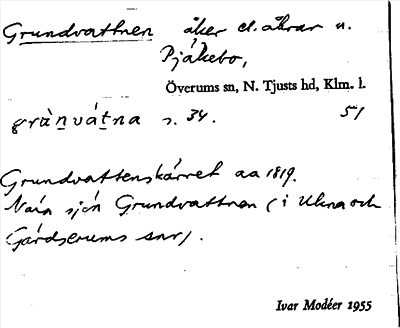 Grundvattnen åker el. åkrar u.
Pjäkebo,
Överums sn, N. Tjusts hd, Klm. l.
grànvátna s. 34. 51
Grundvattenskärret aa 1819.
Nära sjön Grundvattnen (i Ukna och
Gärdserums snr).
Ivar Modéer 1955